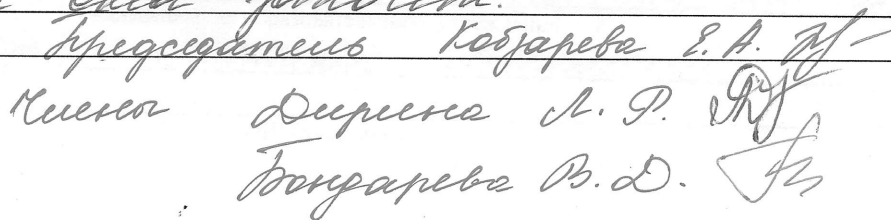 Председатель Кобзарева Е. А.
Члены Дирина Л. Р.
Бондарева В. Д.